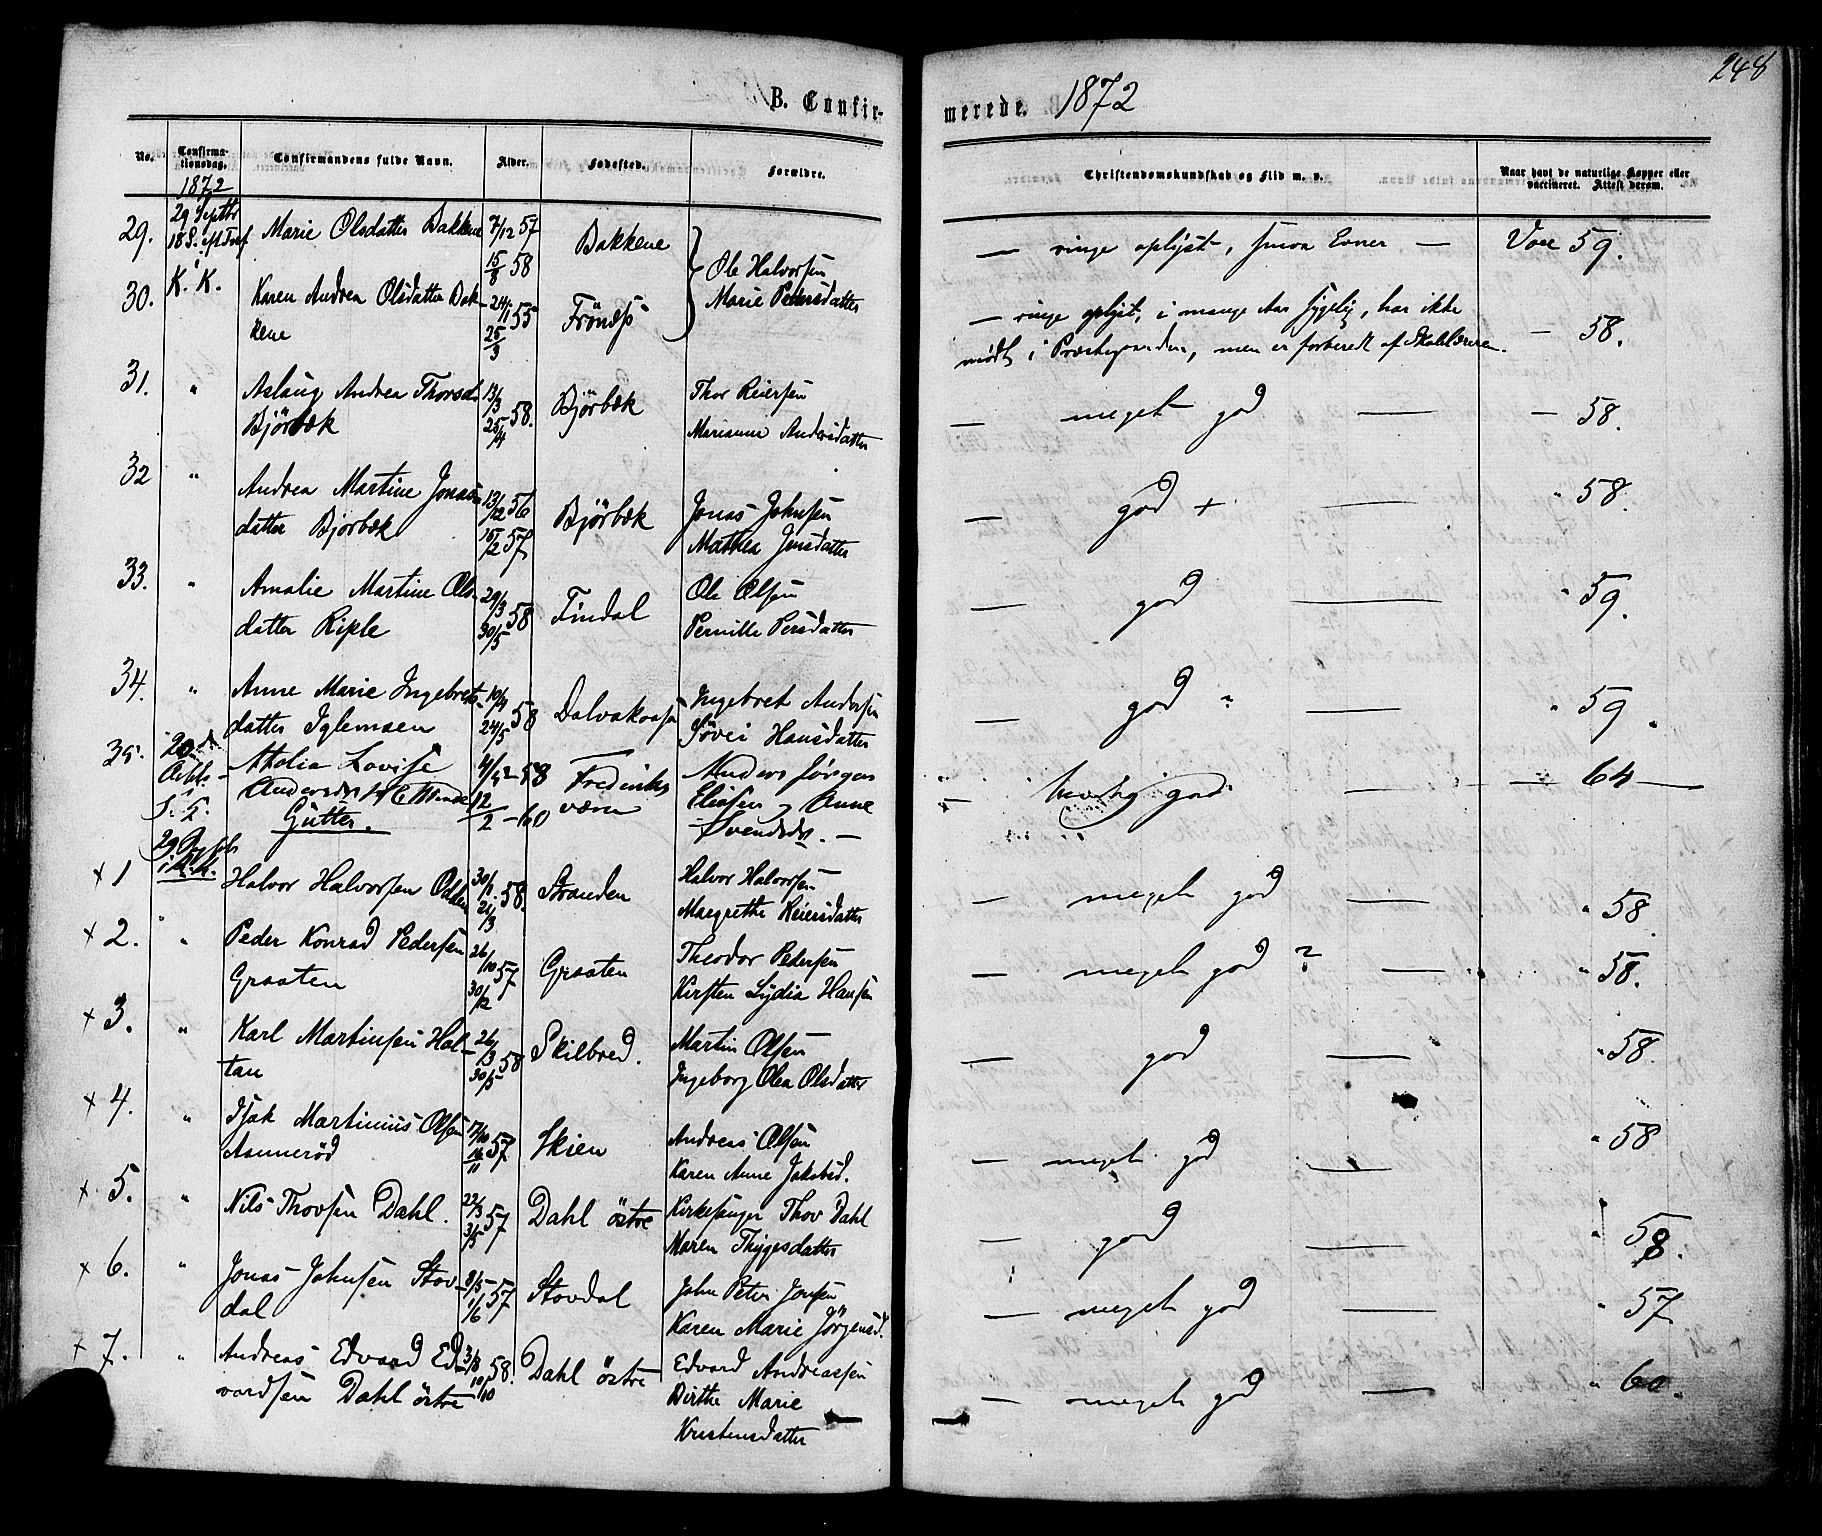 248
B. Confirmerede. 1872
No. Confirmationsdag. Confirmandens fulde Navn. Alder. Fødested. Forældre. Christendomskundskab og Flid m. v. Naar havt de naturlige Kopper eller vaccineret. Attest derom.
1872
29. 29 Septbr 18 S. e. Tref Marie Olsdatter Bakkene 7/12 57 15/8 58 Bakkene Ole Halvorsen — ringe oplyst, smaa Evner — Vacc 59.
i K. K.
30. Karen Andrea Olsdatter Bak- 24/1 55 Frönæs Marie Pedersdatter — ringe oplyst, i mange Aar sygelig, har ikke — 58.
kene 25/3 mødt i Præstegaarden, men er forberedt af Skolelæreren.
31. " Aslaug Andrea Thorsd. 13/3 58. Björbæk Thor Reiersen — meget god — — 58.
Björbæk 25/4 Marianne Andersdatter
32 " Andrea Martine Jonas- 13/12 56 Björbæk Jonas Johnsen — god + — " 58.
datter Björbæk 15/2 57. Mathea Jensdatter
33. " Amalie Martine Ols- 29/3 58 Findal Ole Olsen — god — " 59.
datter Riple 30/5 Pernille Persdatter
34. " Anne Marie Ingebrets- 19/4 58 Dalvakaasa Ingebret Andersen — god — " 59.
datter Iglemoen 24/5 Søvei Hansdatter
35. 20de Octbr Atalia Lovise 4/12 58 Frederiks Anders Jørgen — god — — 64 —
Andersdtr 12/2 — 60 værn Eliasen og Anne
Gutter. Svendsdtr. —
29 Septbr
i K. K.
x 1 Halvor Halvorsen Odden 30/1 58. 21/3 Stranden Halvor Halvorsen — meget god — " 58.
Margrethe Reiersdatter
x 2. " Peder Konrad Pedersen 26/10 57 Graaten Theodor Pedersen — meget god ? — " 58.
Graaten 30/12 Kirsten Lydia Hansen
x 3. " Karl Martinsen Hal- 26/3 58 Skilbred. Martin Olsen — god — " 58.
tan 30/5 Ingeborg Olea Olsdatter
x 4. " Isak Martinius Olsen 17/10 57 Skien Andreas Olsen — meget god — " 58
Asmerød 16/11 Karen Anne Jakobsd.
x 5. " Nils Thovsen Dahl. 22/3 57 Dahl östre Kirkesanger Thov Dahl — god — " 58.
3/5 Maren Thygesdatter
x 6. " Jonas Johnsen Stov- 8/5 57 Stovdal John Peter Jonsen — meget god — " 57
dal 1/6 Karen Marie Jörgensd.
x 7. " Andreas Edvard Ed- 3/8 58. Dahl östre Edvard Andreassen — meget god — " 60.
vardsen Dahl östre 10/10 Birthe Marie
Kristensdatter